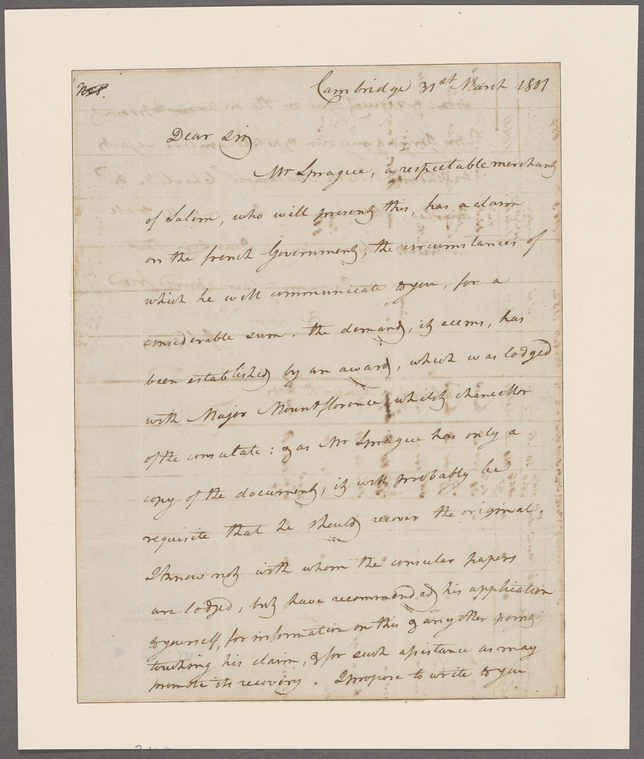 Cambridge 31st March 1801
Dear Sir
Mr Sprague, a respectable merchant
of Salem, who will present this, has a claim
on the french Government, the circumstances of
which he will communicate to you, for a
considerable sum. the demand, it seems, has
been established by an award, which was lodged
with Major Mountflorence whilst chancellor
of the consulate: & as Mr Sprague has only a
copy of the document, it will probably be
requisite that he should recover the original.
I know not with whom the consular papers
are lodged, but have recommended his application
to yourself, for information on this & any other point
touching his claim, & for such assistance as may
promote its recovery. I propose to write to you